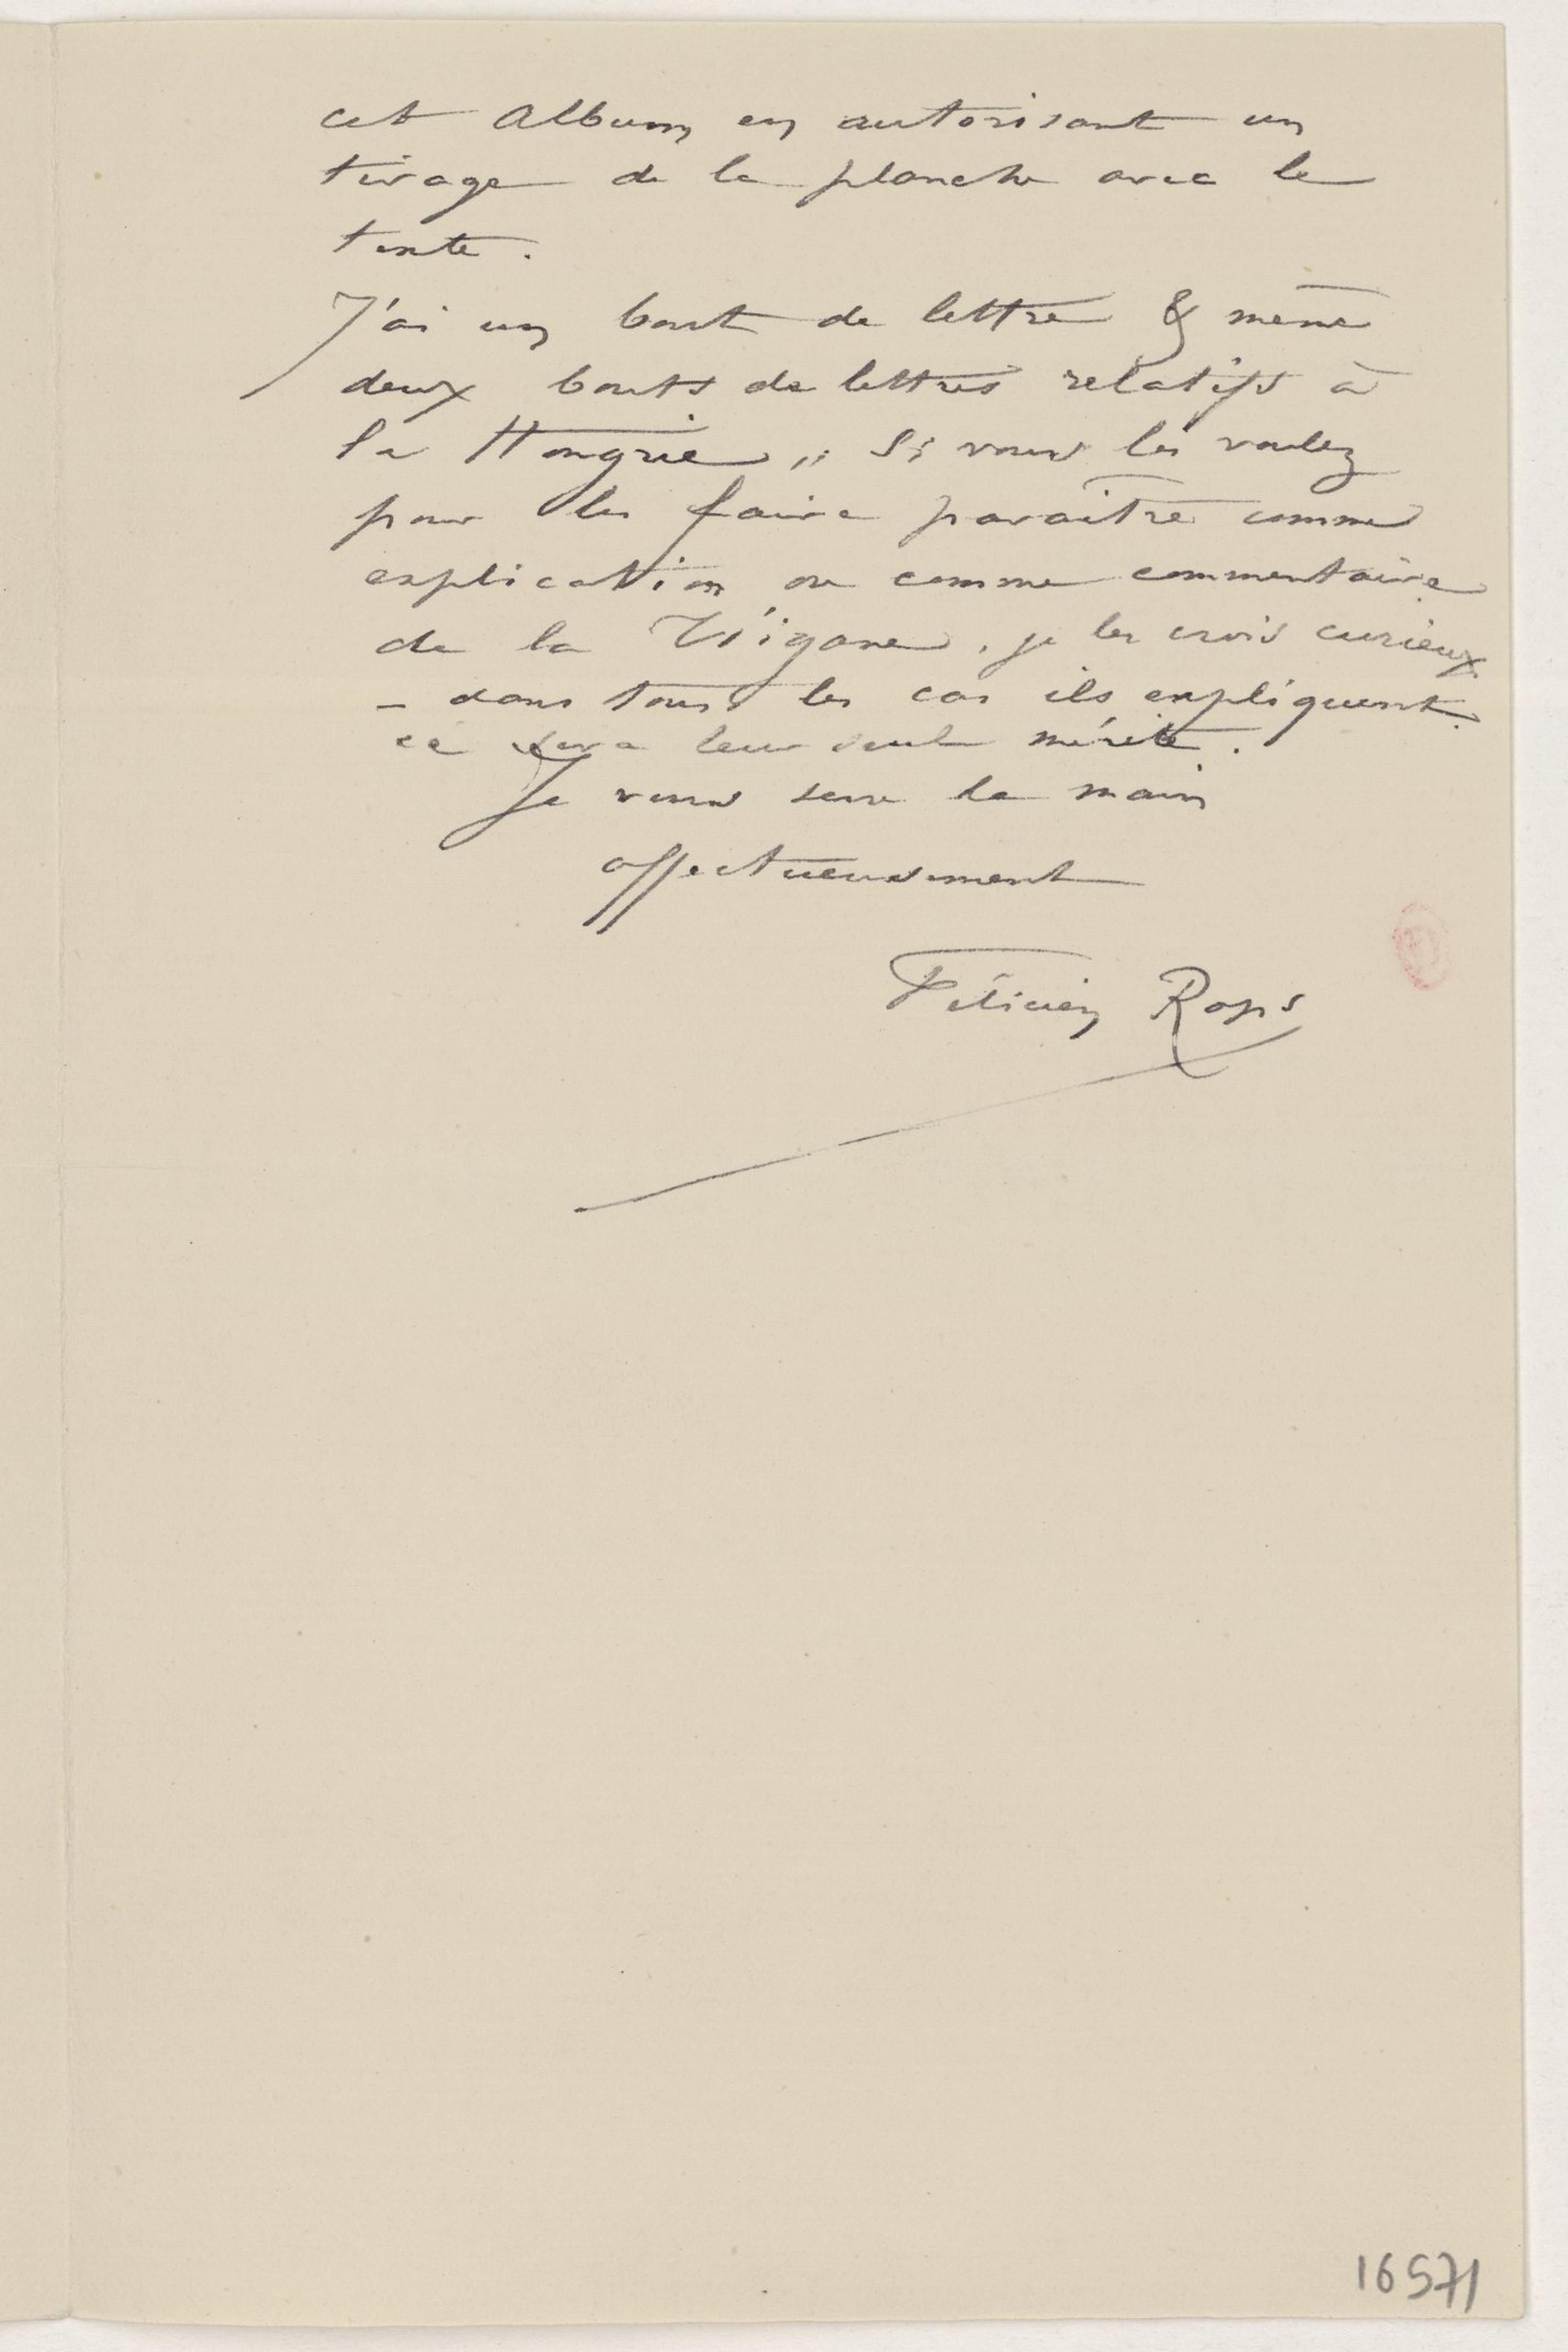 cet Album en autorisant un
tirage de la planche avec le
texte.
J'ai un bout de lettre & même
deux bouts de lettres relatifs à
la Hongrie „ Si vous les voulez
pour les faire paraître comme
explication ou comme commentaire
de la Tsigane, je les crois curieux
– dans tous les cas ils expliquent.
ce sera leur seul mérite.
Je vous serre la main
affectueusement
Félicien Rops
16571